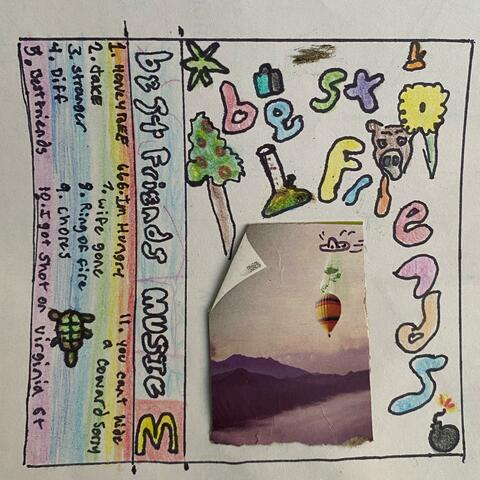 best
Friends
best Friends music
1. HONEYTREE
2. JAKE
3. stranger
4. Diff
5. Bestfriends
666. Im Hungry
7. wife gone
8. Ring of fire
9. chores
10. I got shot on Virginia St
11. you cant hide
a coward sorry